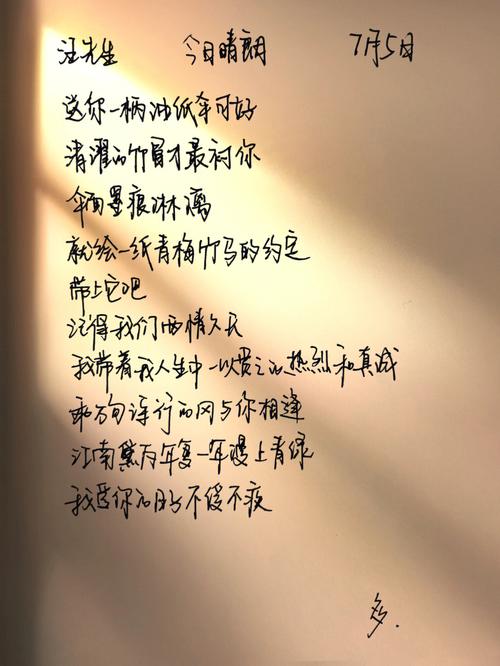 汪先生 今日晴朗 7月5日
送你一柄油纸伞可好
清濯的竹骨才最衬你
伞面墨痕淋漓
就绘一纸青梅竹马的约定
带上它吧
记得我们两情久长
我带着我人生中一以贯之的热烈和真诚
乘万句诗行的风与你相逢
江南黛瓦年复一年漫上青绿
我爱你的日子不缓不疲
多.